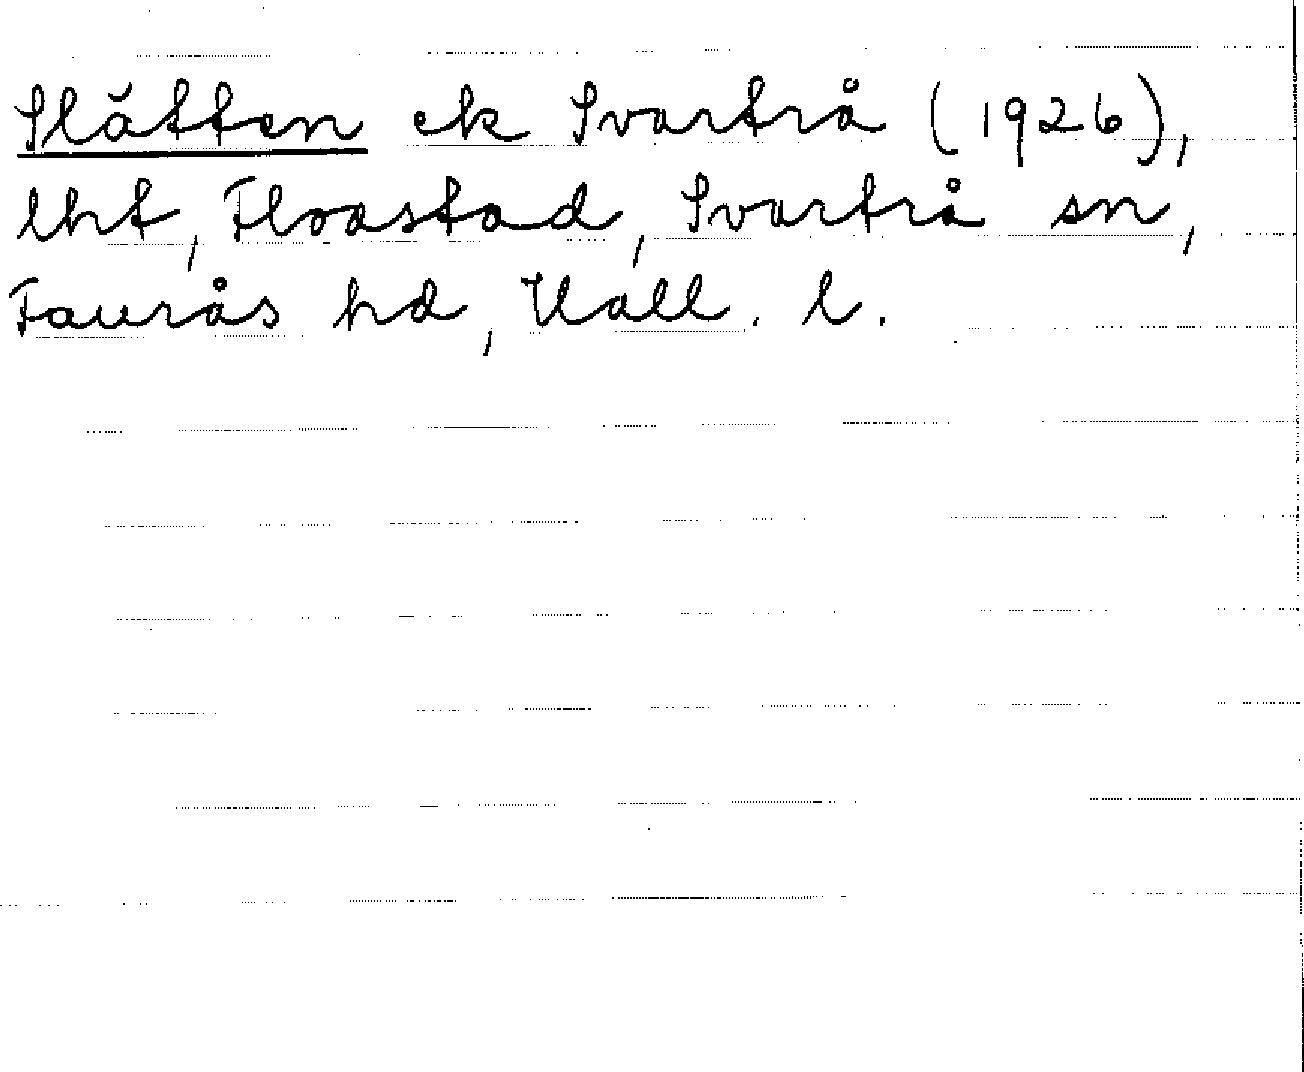 Slätten ek Svartrå (1926),
lht, Floastad, Svartrå sn,
Faurås hd, Hall. l.